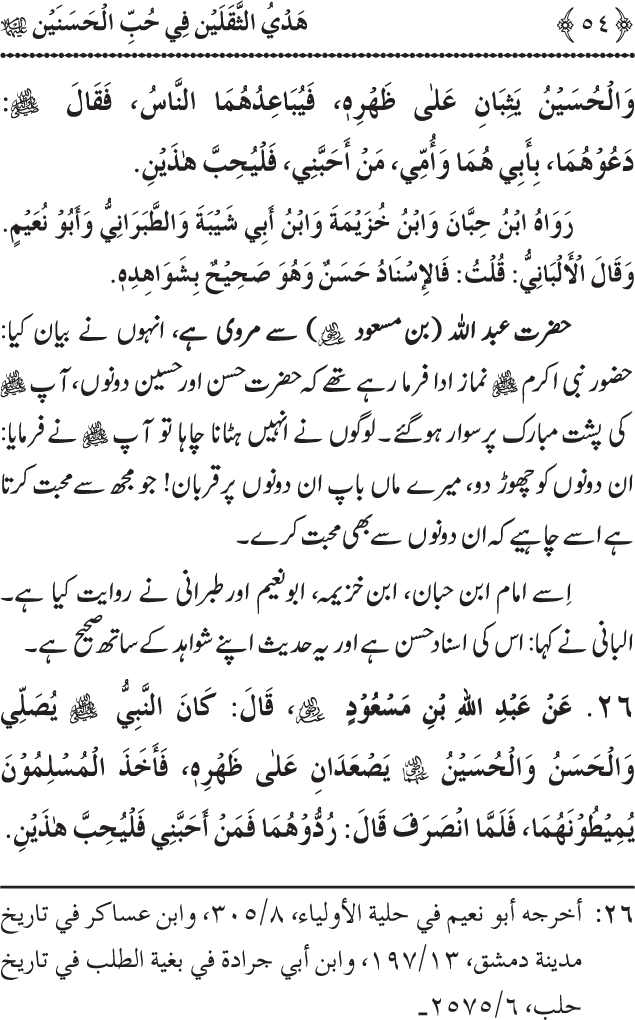 ﴿٥٤﴾ هَدْيُ الثَّقَلَيْنِ فِي حُبِّ الْحَسَنَيْنِ
وَالْحُسَيْنُ يَثِبَانِ عَلٰى ظَهْرِهٖ، فَيُبَاعِدُهُمَا النَّاسُ، فَقَالَ ﷺ:
دَعُوْهُمَا، بِأَبِي هُمَا وَأُمِّي، مَنْ أَحَبَّنِي، فَلْيُحِبَّ هٰذَيْنِ.
رَوَاهُ ابْنُ حِبَّانَ وَابْنُ خُزَيْمَةَ وَابْنُ أَبِي شَيْبَةَ وَالطَّبَرَانِيُّ وَأَبُوْ نُعَيْمٍ.
وَقَالَ الْأَلْبَانِيُّ: قُلْتُ: فَالإِسْنَادُ حَسَنٌ وَهُوَ صَحِيْحٌ بِشَوَاهِدِهٖ.
حضرت عبد اللہ (بن مسعود رضی اللہ عنہ) سے مروی ہے، انہوں نے بیان کیا:
حضور نبی اکرم ﷺ نماز ادا فرما رہے تھے کہ حضرت حسن اور حسین دونوں، آپ ﷺ
کی پشت مبارک پر سوار ہوگئے۔ لوگوں نے انہیں ہٹانا چاہا تو آپ ﷺ نے فرمایا:
ان دونوں کو چھوڑ دو، میرے ماں باپ ان دونوں پر قربان! جو مجھ سے محبت کرتا
ہے اسے چاہیے کہ ان دونوں سے بھی محبت کرے۔
اِسے امام ابن حبان، ابن خزیمہ، ابو نعیم اور طبرانی نے روایت کیا ہے۔
البانی نے کہا: اس کی اسناد حسن ہے اور یہ حدیث اپنے شواہد کے ساتھ صحیح ہے۔
٢٦. عَنْ عَبْدِ اللهِ بْنِ مَسْعُوْدٍ رضي الله عنه، قَالَ: كَانَ النَّبِيُّ ﷺ يُصَلِّي
وَالْحَسَنُ وَالْحُسَيْنُ يَصْعَدَانِ عَلٰى ظَهْرِهٖ، فَأَخَذَ الْمُسْلِمُوْنَ
يُمِيْطُوْنَهُمَا، فَلَمَّا انْصَرَفَ قَالَ: رُدُّوْهُمَا فَمَنْ أَحَبَّنِي فَلْيُحِبَّ هٰذَيْنِ.
٢٦: أخرجه أبو نعيم في حلية الأولياء، ٨/٣٠٥، وابن عساكر في تاريخ
مدينة دمشق، ١٣/١٩٧، وابن أبي جرادة في بغية الطلب في تاريخ
حلب، ٦/٢٥٧٥ـ